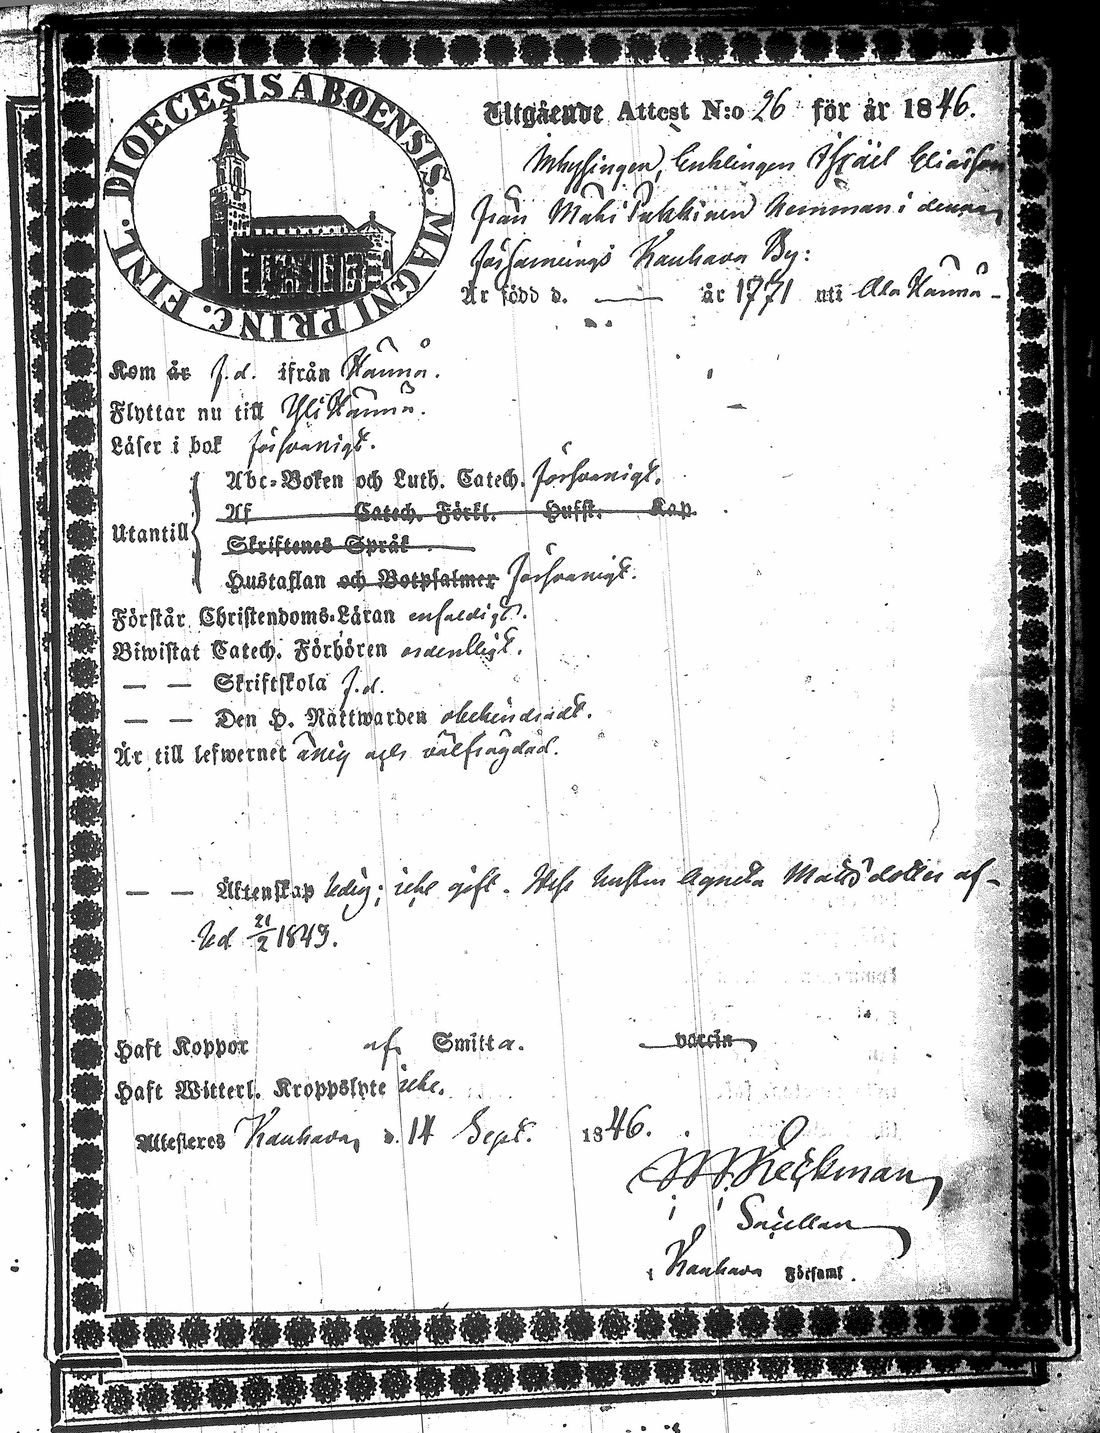 DIOECESIS ABOENSIS. MAGNI PRINC. FINL.
Utgående Attest N:o 26 för år 1846.
Inhysingen, Enklingen Israël Eliasson
från Mäki Pukkinen Hemman i denna
Församlings Kauhava By:
Är född d. — år 1771 uti Ala Härmä
Kom år f.d. ifrån Härmä.
Flyttar nu till Yli Härmä.
Läser i bok försvarligt.
Abc-Boken och Luth. Catech. försvarligt.
Af Catech. Förkl. Hufst. Kap.
Utantill
Skriftenes Språk
Hustaflan och Botpsalmer försvarligt.
Förstår Christendoms-Läran enfaldigt.
Biwistat Catech. Förhören ordentligt.
— — Skriftskola f.d.
— — Den H. Nattwarden obehindradt.
Är till lefwernet ärlig och välfrägdad.
— — Äktenskap ledig; icke gift. Dess hustru Agneta Mattsdotter af-
led 21/2 1843.
Haft Koppor af Smitta. vaccin
Haft Witterl. Kroppslyte icke.
Attesteres Kauhava, d. 14 Sept. 1846.
Sacellan
i Kauhava Församl.